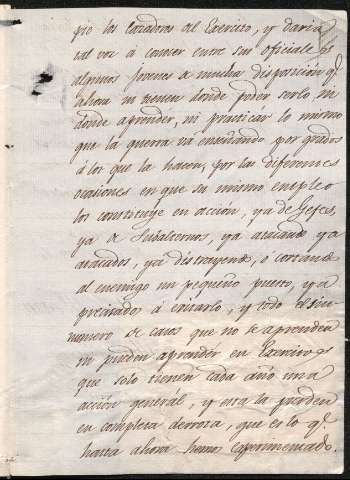 gio los Cazadores del Exercito, y daria
tal vez á conocer entre sus oficiales
algunos jovenes de mucha disposicion q.e
ahora ni tienen donde poder serlo, ni
donde aprender, ni practicar lo mismo
que la guerra vá enseñando por grados
á los que la hacen, por las diferentes
ocasiones en que su mismo empleo
los constituye en acción, ya de Gefes,
ya de Subalternos, ya atacando ya
atacados, ya distrayendo, ó cortando
al enemigo un pequeño puesto, ya
precisados á evitarlo, y todo el sin-
numero de casos que no se aprenden
ni pueden aprender en Exercitos
que solo tienen cada año una
acción general, y esta la pierden
en completa derrota, que es lo q.e
hasta ahora hemos experimentado.